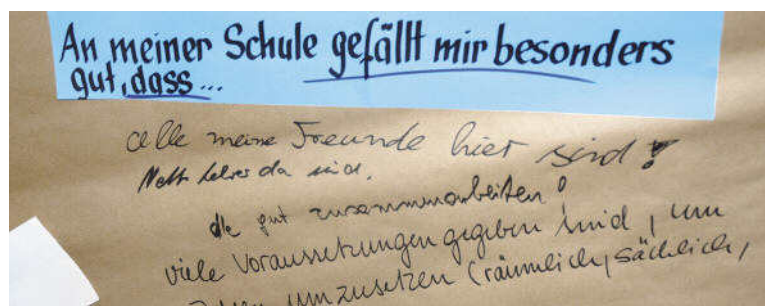 An meiner Schule gefällt mir besonders
gut, dass...
alle meine Freunde hier sind!
Nett da sind.
alle gut zusammenarbeiten!
viele Voraussetzungen gegeben sind, um
umzusetzen (räumlich, sächlich,